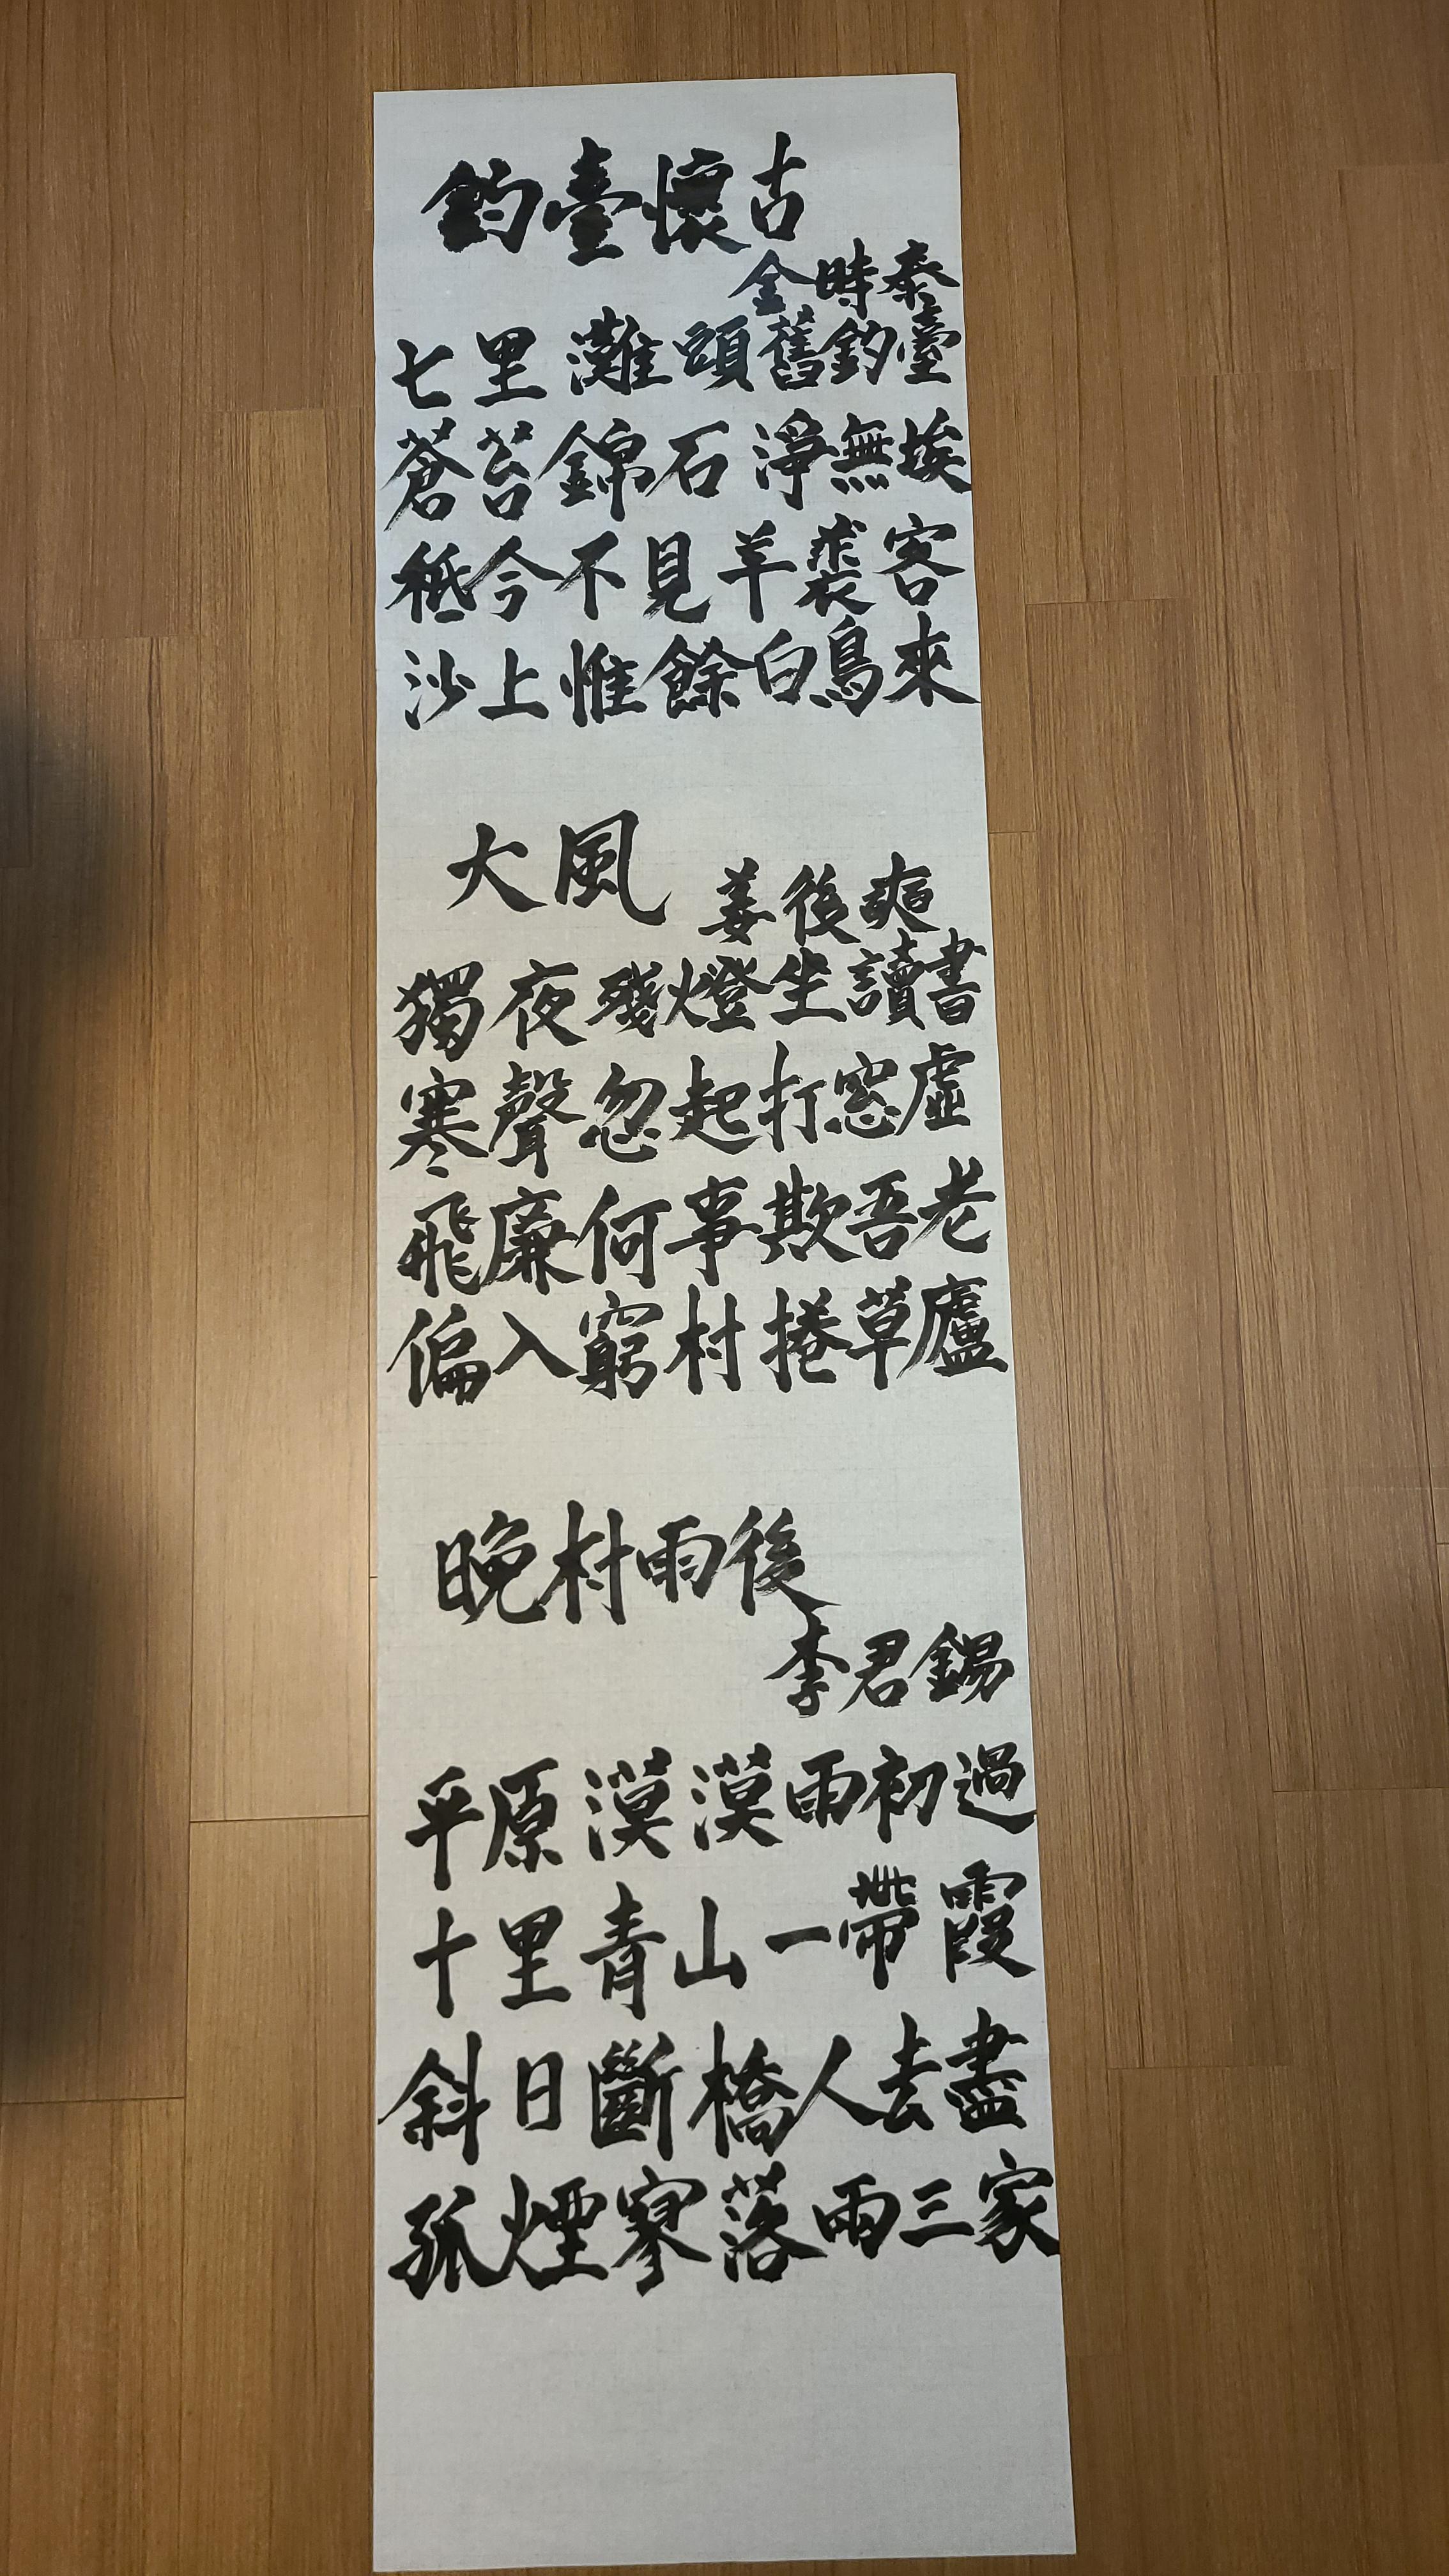 釣臺懷古
金時泰
七里灘頭舊釣臺
蒼苔錦石淨無埃
秪今不見羊裘客
沙上惟餘白鳥來
大風
姜後奭
獨夜殘燈坐讀書
寒聲忽起打窓虛
飛廉何事欺吾老
偏入窮村捲草廬
晩村雨後
李君錫
平原漠漠雨初過
十里青山一帶霞
斜日斷橋人去盡
孤煙寥落雨三家